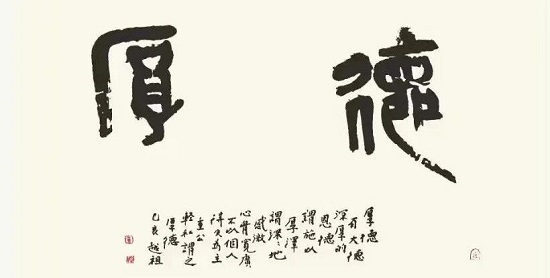 德厚
厚德
有大德
深厚的
恩德
謂施以
厚澤
謂深〻地
感激
心胷寬廣
不以個人
得失為主
重公
輕私謂之
厚德
己亥越祖